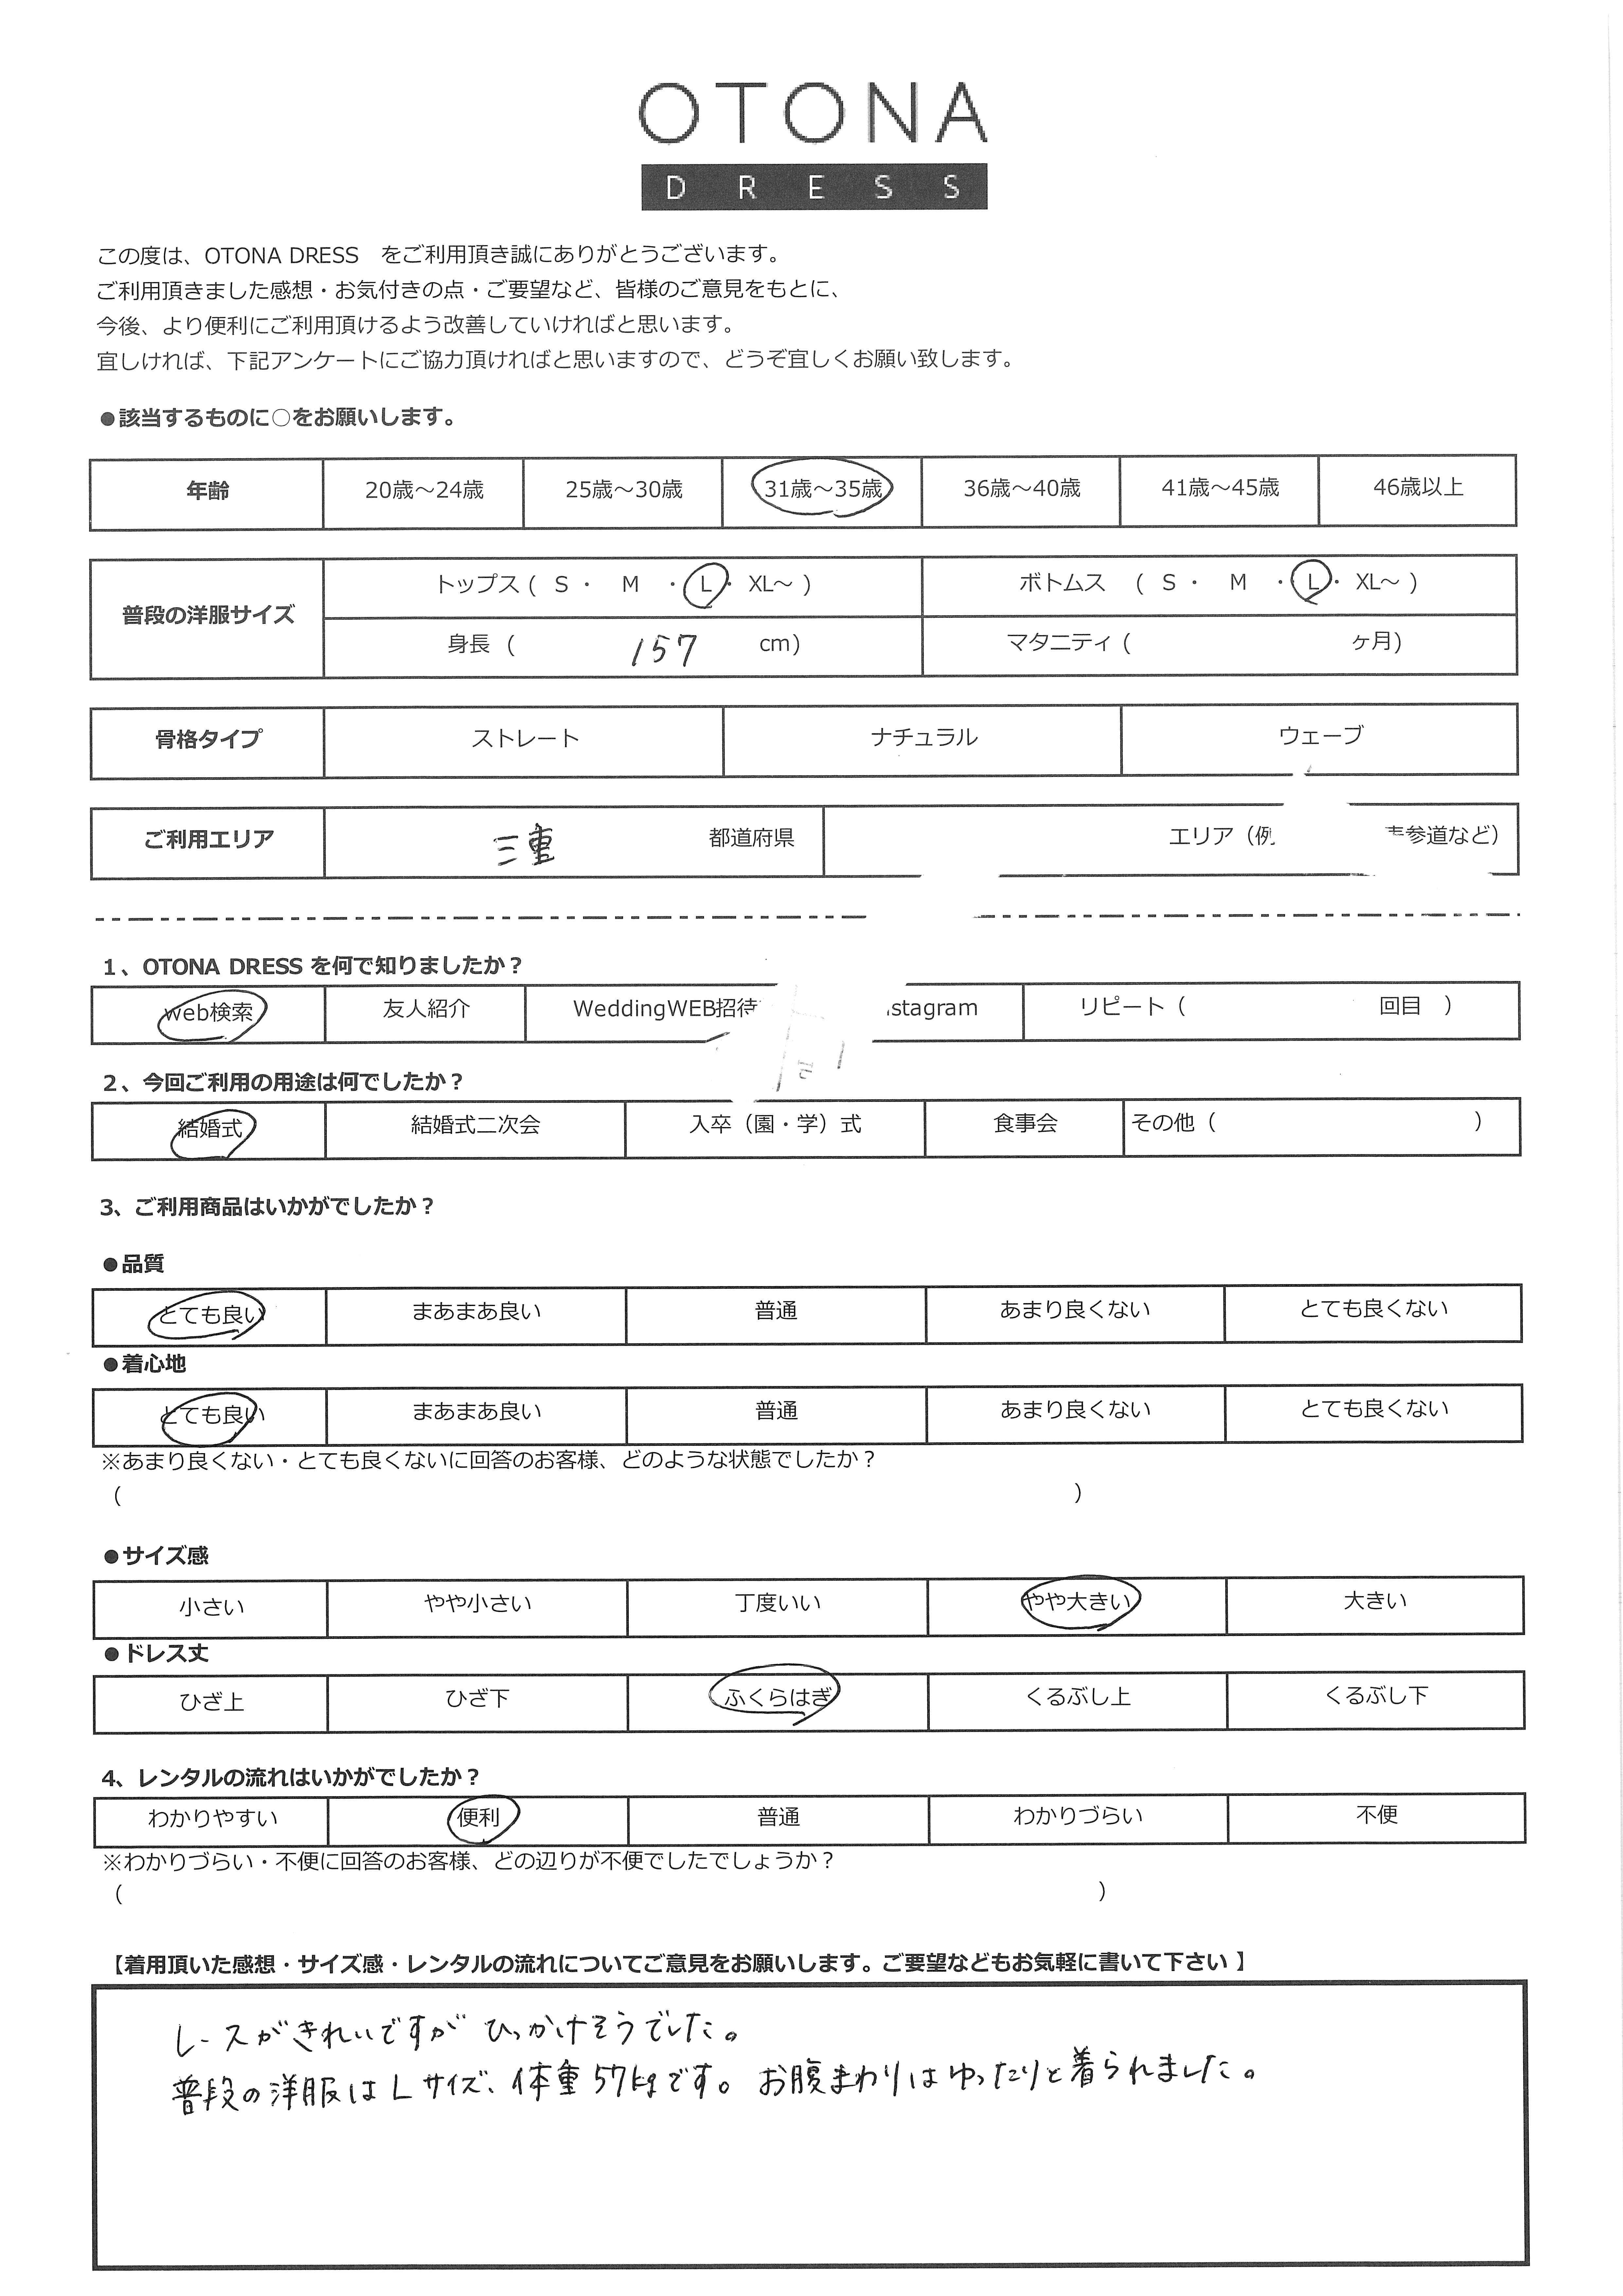 OTONA
DRESS
この度は、OTONA DRESS　をご利用頂き誠にありがとうございます。
ご利用頂きました感想・お気付きの点・ご要望など、皆様のご意見をもとに、
今後、より便利にご利用頂けるよう改善していければと思います。
宜しければ、下記アンケートにご協力頂ければと思いますので、どうぞ宜しくお願い致します。
●該当するものに○をお願いします。
年齢 20歳～24歳 25歳～30歳 31歳～35歳 36歳～40歳 41歳～45歳 46歳以上
普段の洋服サイズ
トップス ( S ・ M ・ L ・ XL～ ) ボトムス ( S ・ M ・ L ・ XL～ )
身長 ( 157 cm) マタニティ ( ヶ月)
骨格タイプ ストレート ナチュラル ウェーブ
ご利用エリア 三重 都道府県 エリア（例 参道など）
1、OTONA DRESS を何で知りましたか？
web検索 友人紹介 WeddingWEB招待 stagram リピート（ 回目 ）
2、今回ご利用の用途は何でしたか？
結婚式 結婚式二次会 入卒（園・学）式 食事会 その他（ ）
3、ご利用商品はいかがでしたか？
●品質
とても良い まあまあ良い 普通 あまり良くない とても良くない
●着心地
とても良い まあまあ良い 普通 あまり良くない とても良くない
※あまり良くない・とても良くないに回答のお客様、どのような状態でしたか？
（ ）
●サイズ感
小さい やや小さい 丁度いい やや大きい 大きい
●ドレス丈
ひざ上 ひざ下 ふくらはぎ くるぶし上 くるぶし下
4、レンタルの流れはいかがでしたか？
わかりやすい 便利 普通 わかりづらい 不便
※わかりづらい・不便に回答のお客様、どの辺りが不便でしたでしょうか？
（ ）
【着用頂いた感想・サイズ感・レンタルの流れについてご意見をお願いします。ご要望などもお気軽に書いて下さい 】
レースがきれいですが ひっかけそうでした。
普段の洋服はLサイズ、体重57kgです。お腹まわりはゆったりと着られました。